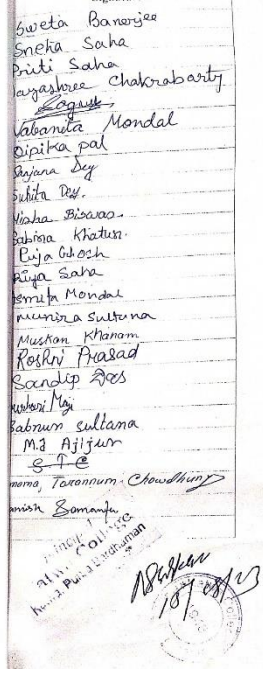 Sweta Banerjee
Sneha Saha
Priti Saha
Jayashree Chakrabarty
Nabanita Mondal
Dipika pal
Sanjana Dey
Suhita Dey.
Misha Biswas.
Sabina Khatun.
Puja Ghosh
Riya Saha
Asmita Mondal
Munira Sultana
Muskan Khanam
Roshni Prasad
Sandip Das
Maji
Sabnun Sultana
M.d Ajijur
S T C
Tarannum Chowdhury
Samanta
College
Purba Bardhaman